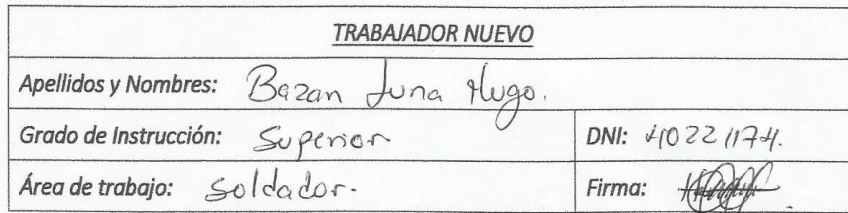 TRABAJADOR NUEVO
Apellidos y Nombres: Bazan Luna Hugo.
Grado de Instrucción: Superior DNI: 40221174.
Área de trabajo: Soldador. Firma: